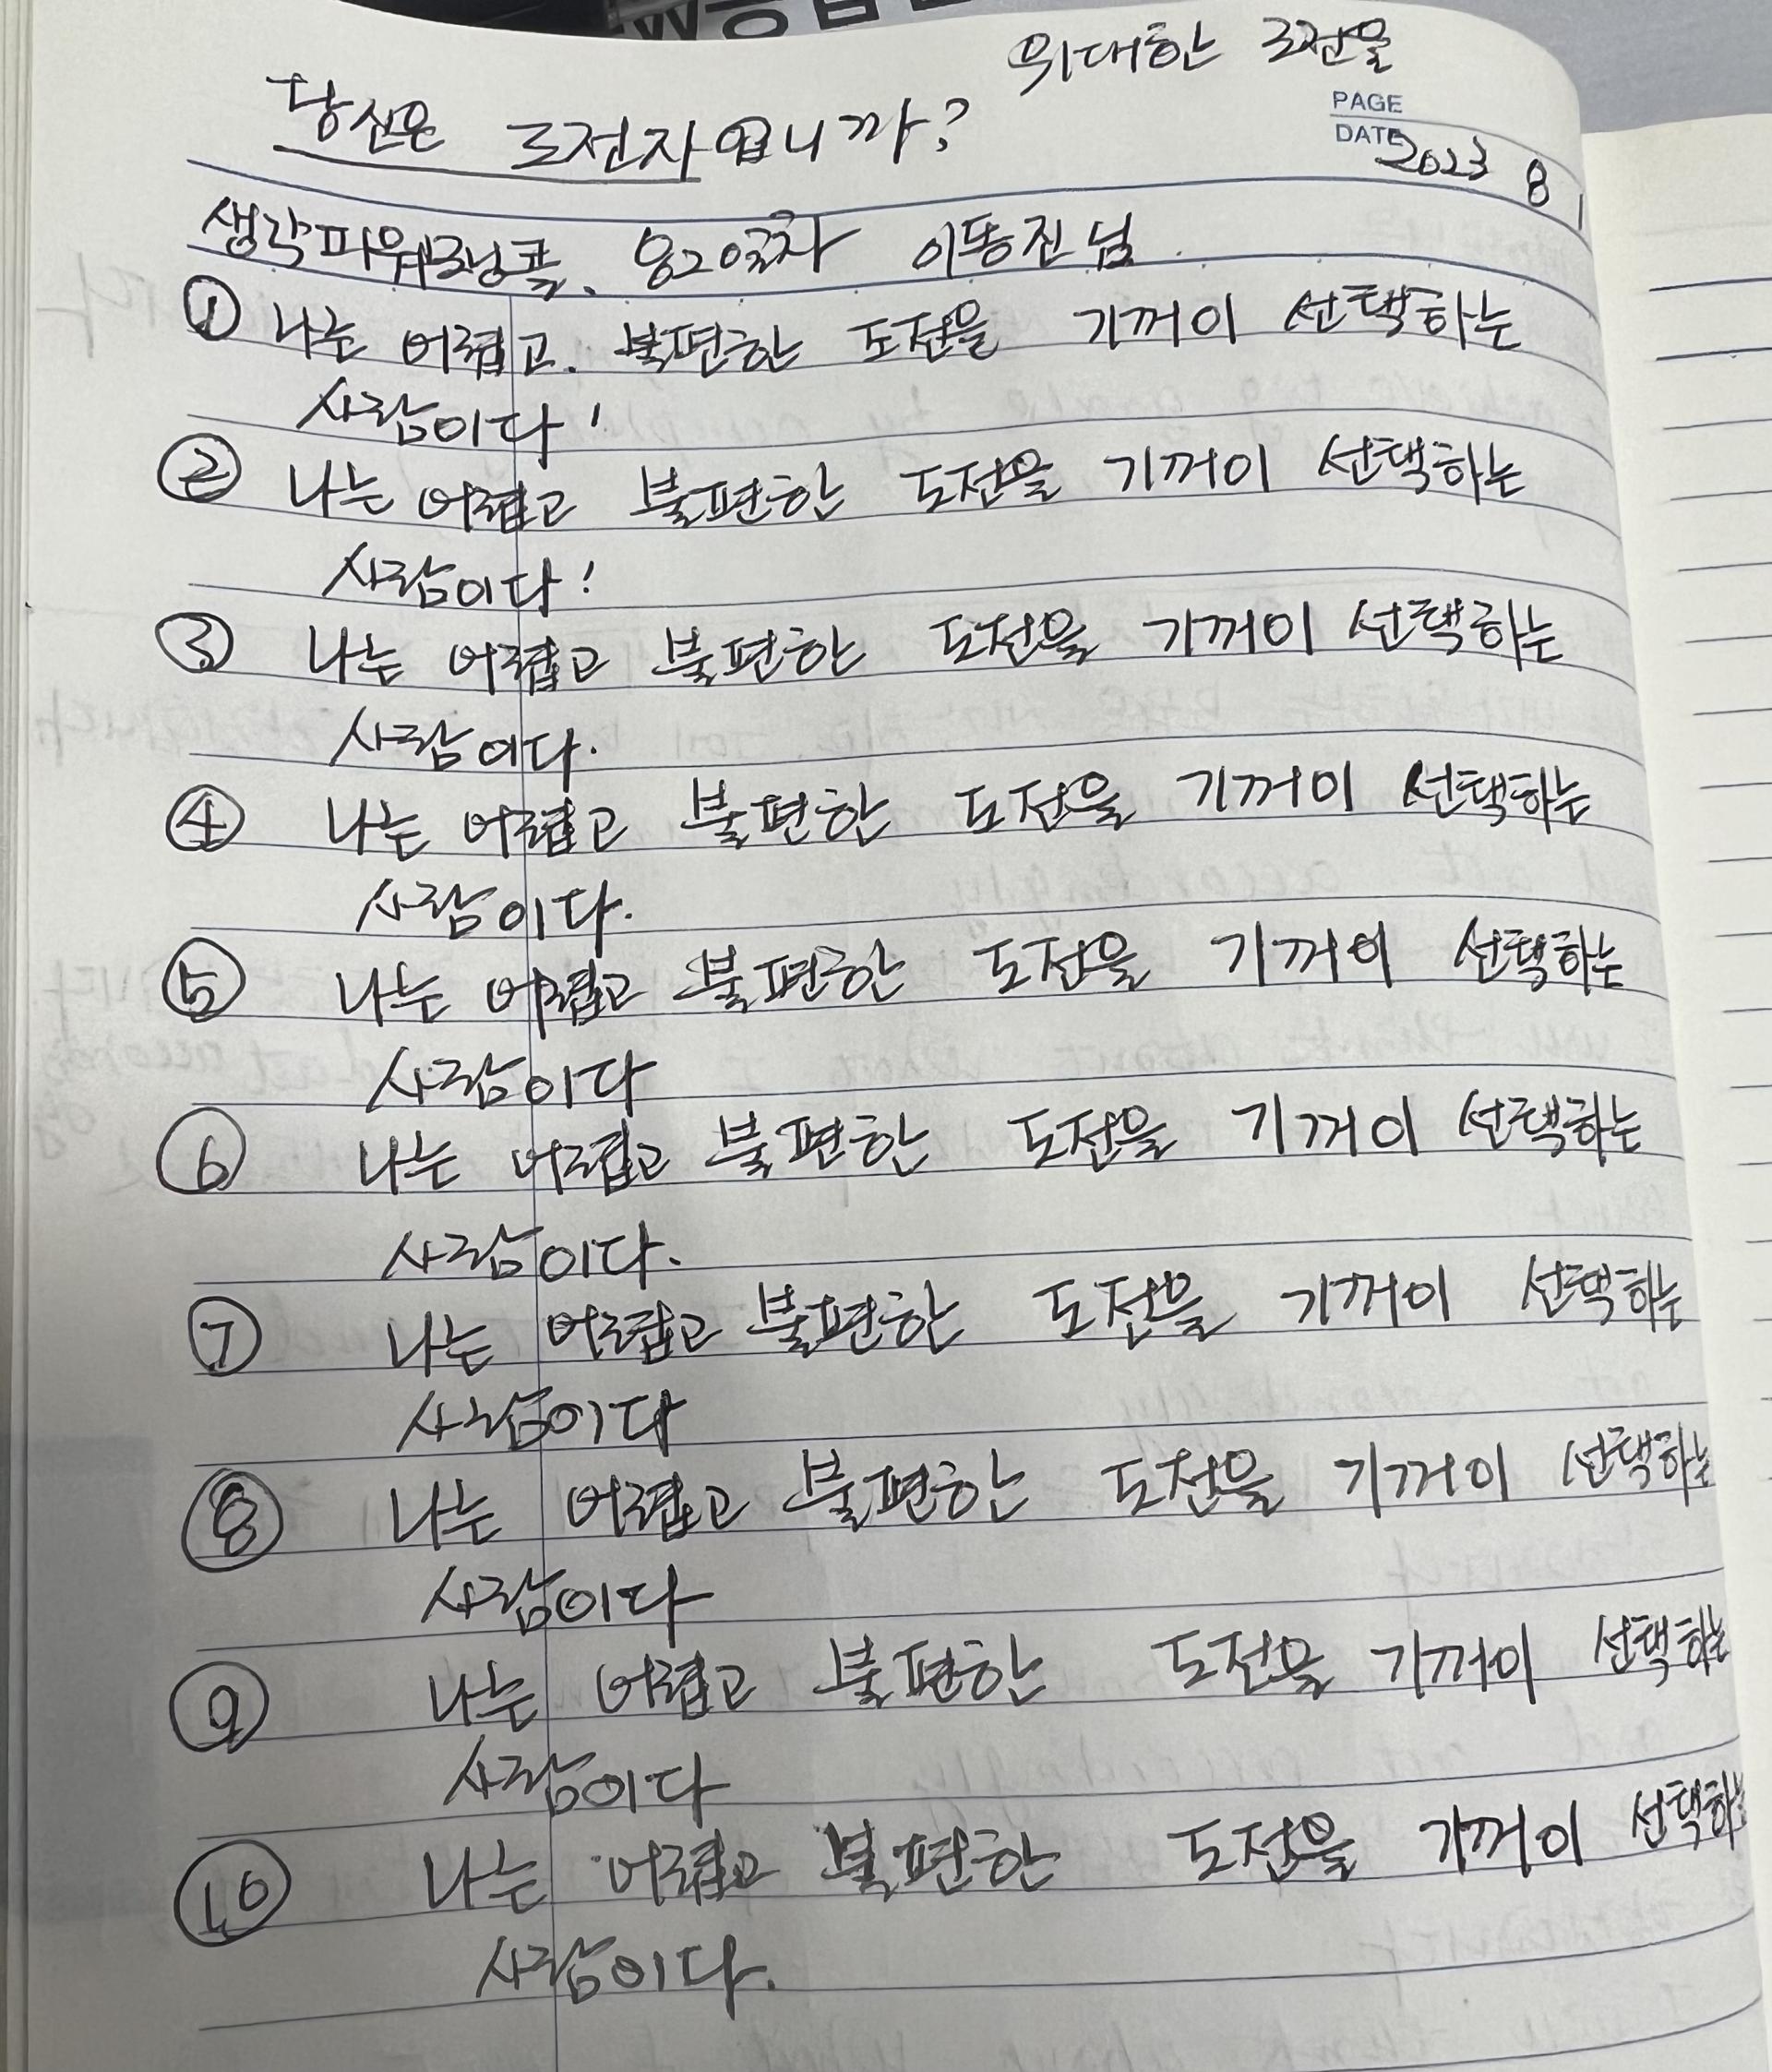 위대한 도전을
당신은 도전자입니까?
PAGE
DATE 2023 8 1
생각파워모닝콜. 820일차 이동진님
① 나는 어렵고. 불편한 도전을 기꺼이 선택하는
사람이다!
② 나는 어렵고 불편한 도전을 기꺼이 선택하는
사람이다!
③ 나는 어렵고 불편한 도전을 기꺼이 선택하는
사람이다.
④ 나는 어렵고 불편한 도전을 기꺼이 선택하는
사람이다.
⑤ 나는 어렵고 불편한 도전을 기꺼이 선택하는
사람이다
⑥ 나는 어렵고 불편한 도전을 기꺼이 선택하는
사람이다.
⑦ 나는 어렵고 불편한 도전을 기꺼이 선택하는
사람이다
⑧ 나는 어렵고 불편한 도전을 기꺼이 선택하는
사람이다
⑨ 나는 어렵고 불편한 도전을 기꺼이 선택하는
사람이다
⑩ 나는 어렵고 불편한 도전을 기꺼이 선택하는
사람이다.